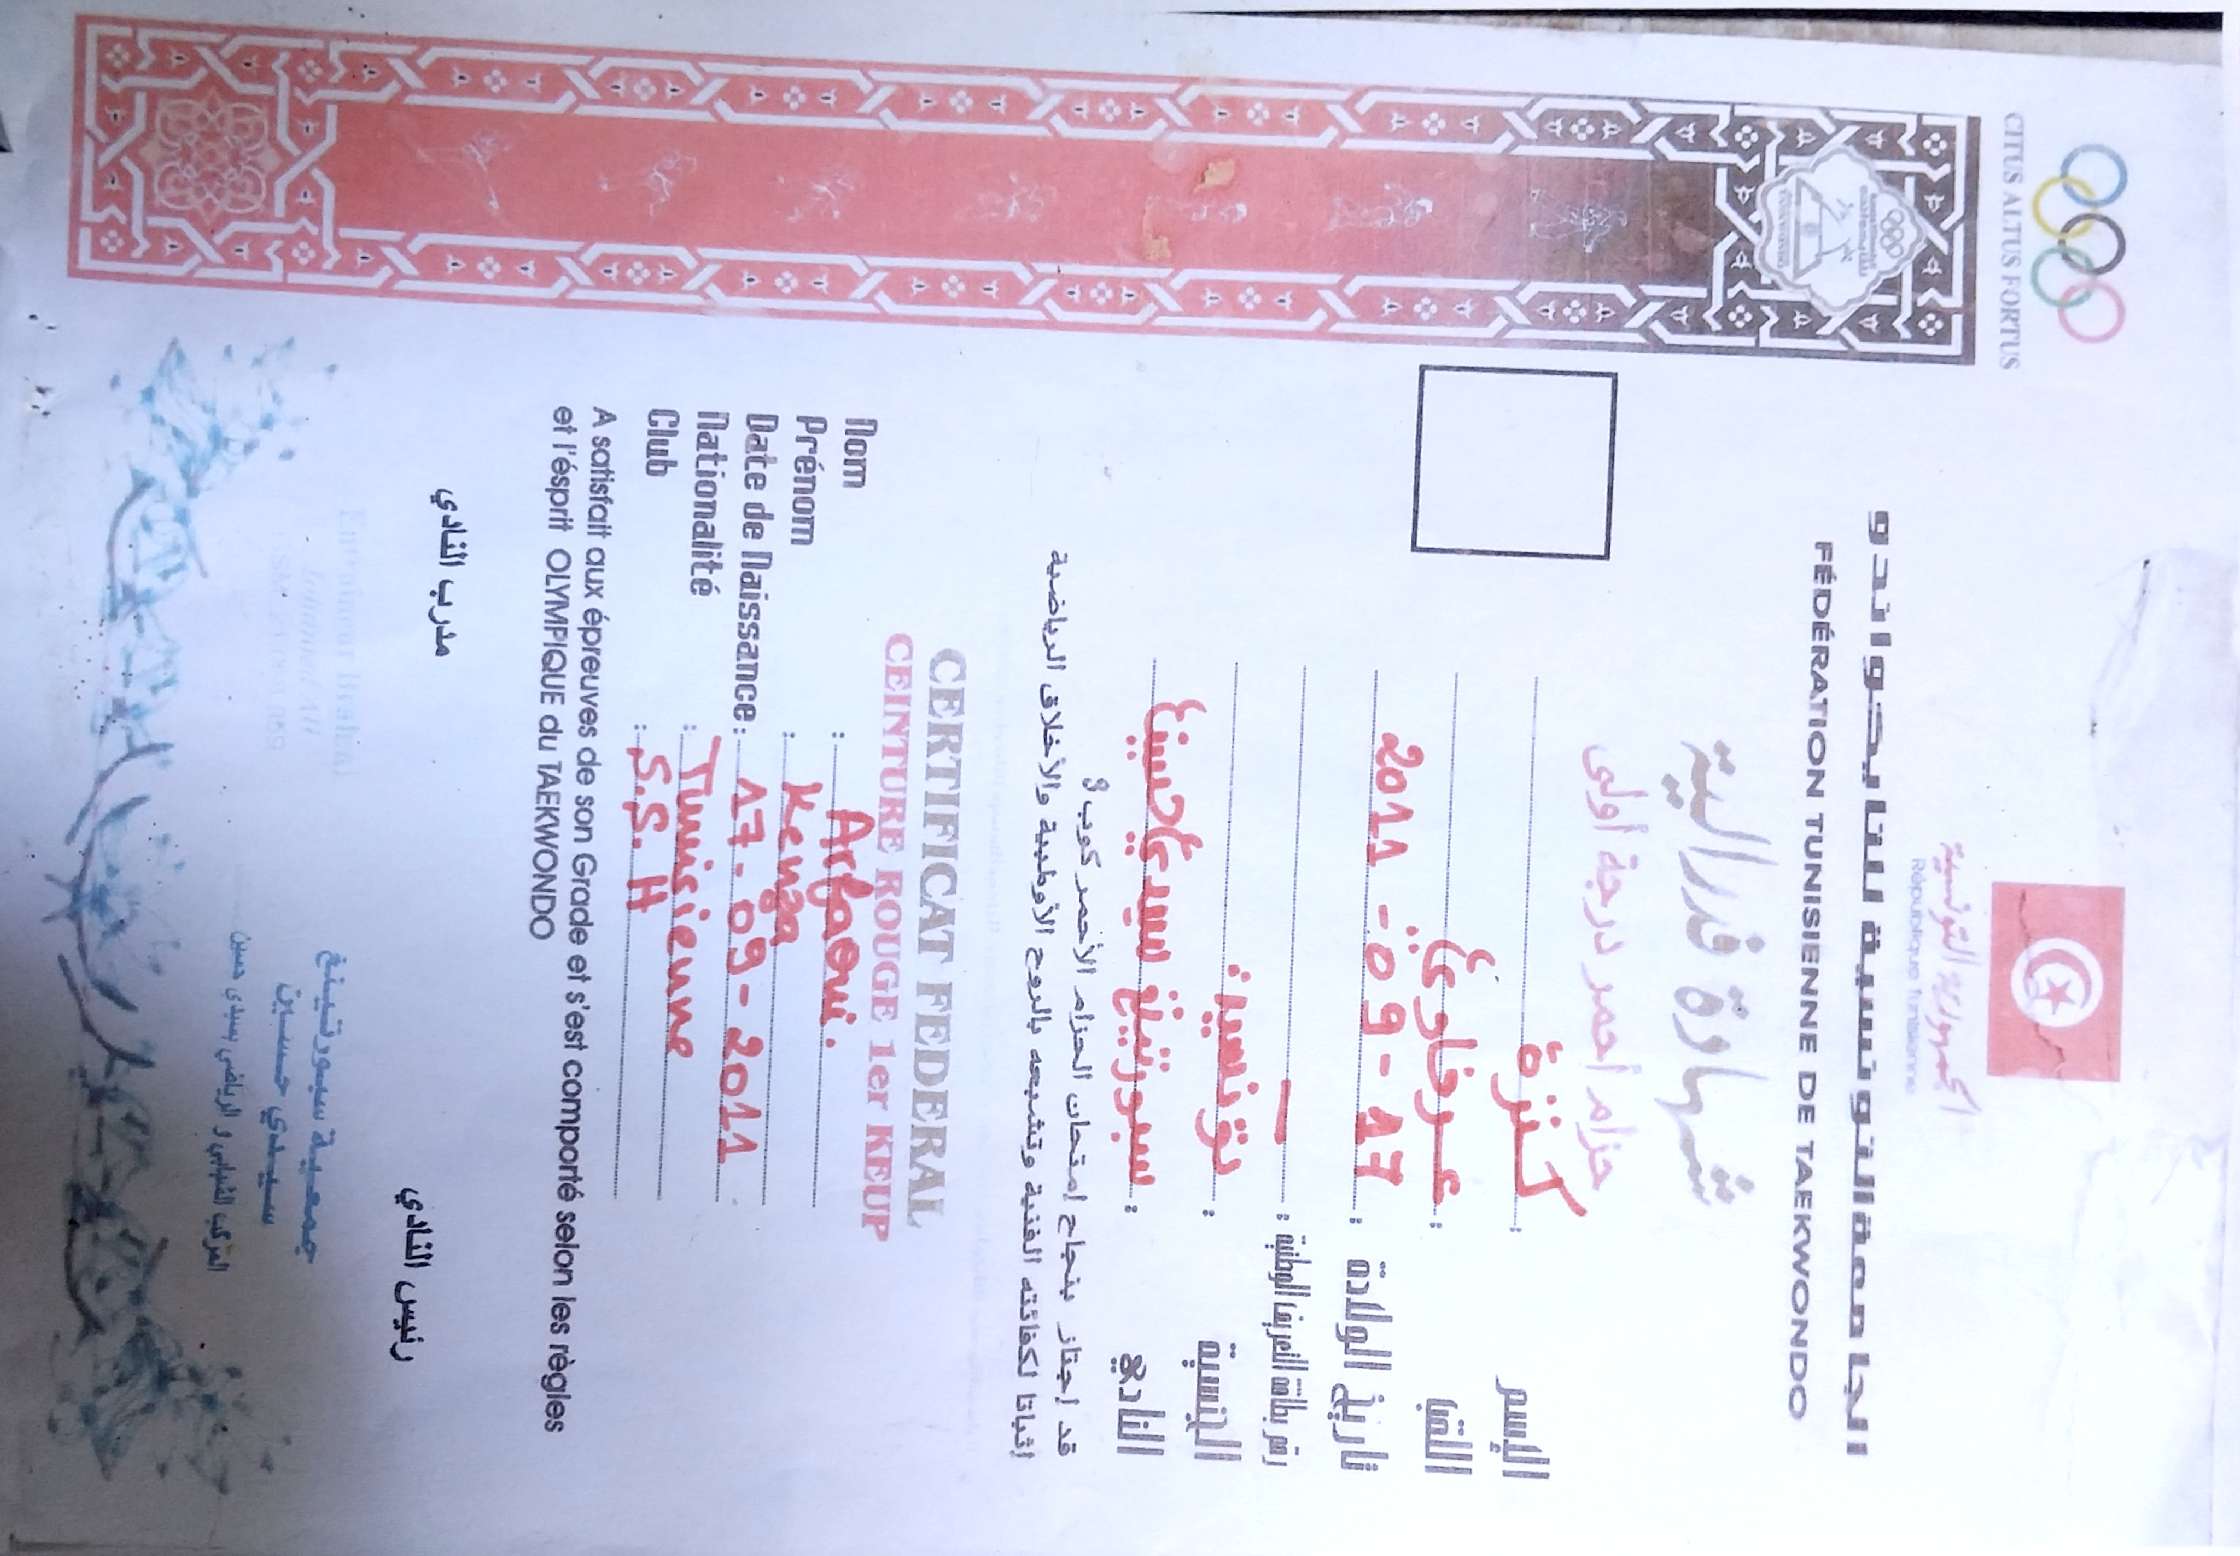 CITUS ALTUS FORTUS
الجمهورية التونسية
République Tunisienne
الجامعة التونسية للتايكواندو
FÉDÉRATION TUNISIENNE DE TAEKWONDO
شهادة فدرالية
حزام أحمر درجة أولى
الإسم : كنزة
اللقب : عرفاوي
تاريخ الولادة : 17-09-2011
رقم بطاقة التعريف الوطنية : —
الجنسية : تونسية
النادي : سبورتينغ سيدي حسين
قد إجتاز بنجاح إمتحان الحزام الأحمر كوب 8
إثباتا لكفائته الفنية وتشبعه بالروح الأولمبية والأخلاق الرياضية
CERTIFICAT FEDERAL
CEINTURE ROUGE 1er KEUP
Nom : Arfaoui.
Prénom : Kenza
Date de Naissance : 17-09-2011
Nationalité : Tunisienne
Club : S.S.H
A satisfait aux épreuves de son Grade et s'est comporté selon les règles
et l'ésprit OLYMPIQUE du TAEKWONDO
مدرب النادي
رئيس النادي
جمعية سبورتينغ
سيدي حسين
المركب الشبابي و الرياضي بسيدي حسين